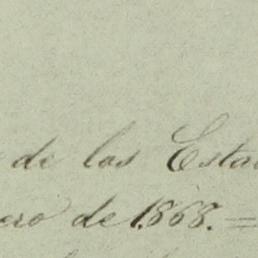 de las Esta
ero de 1868. =